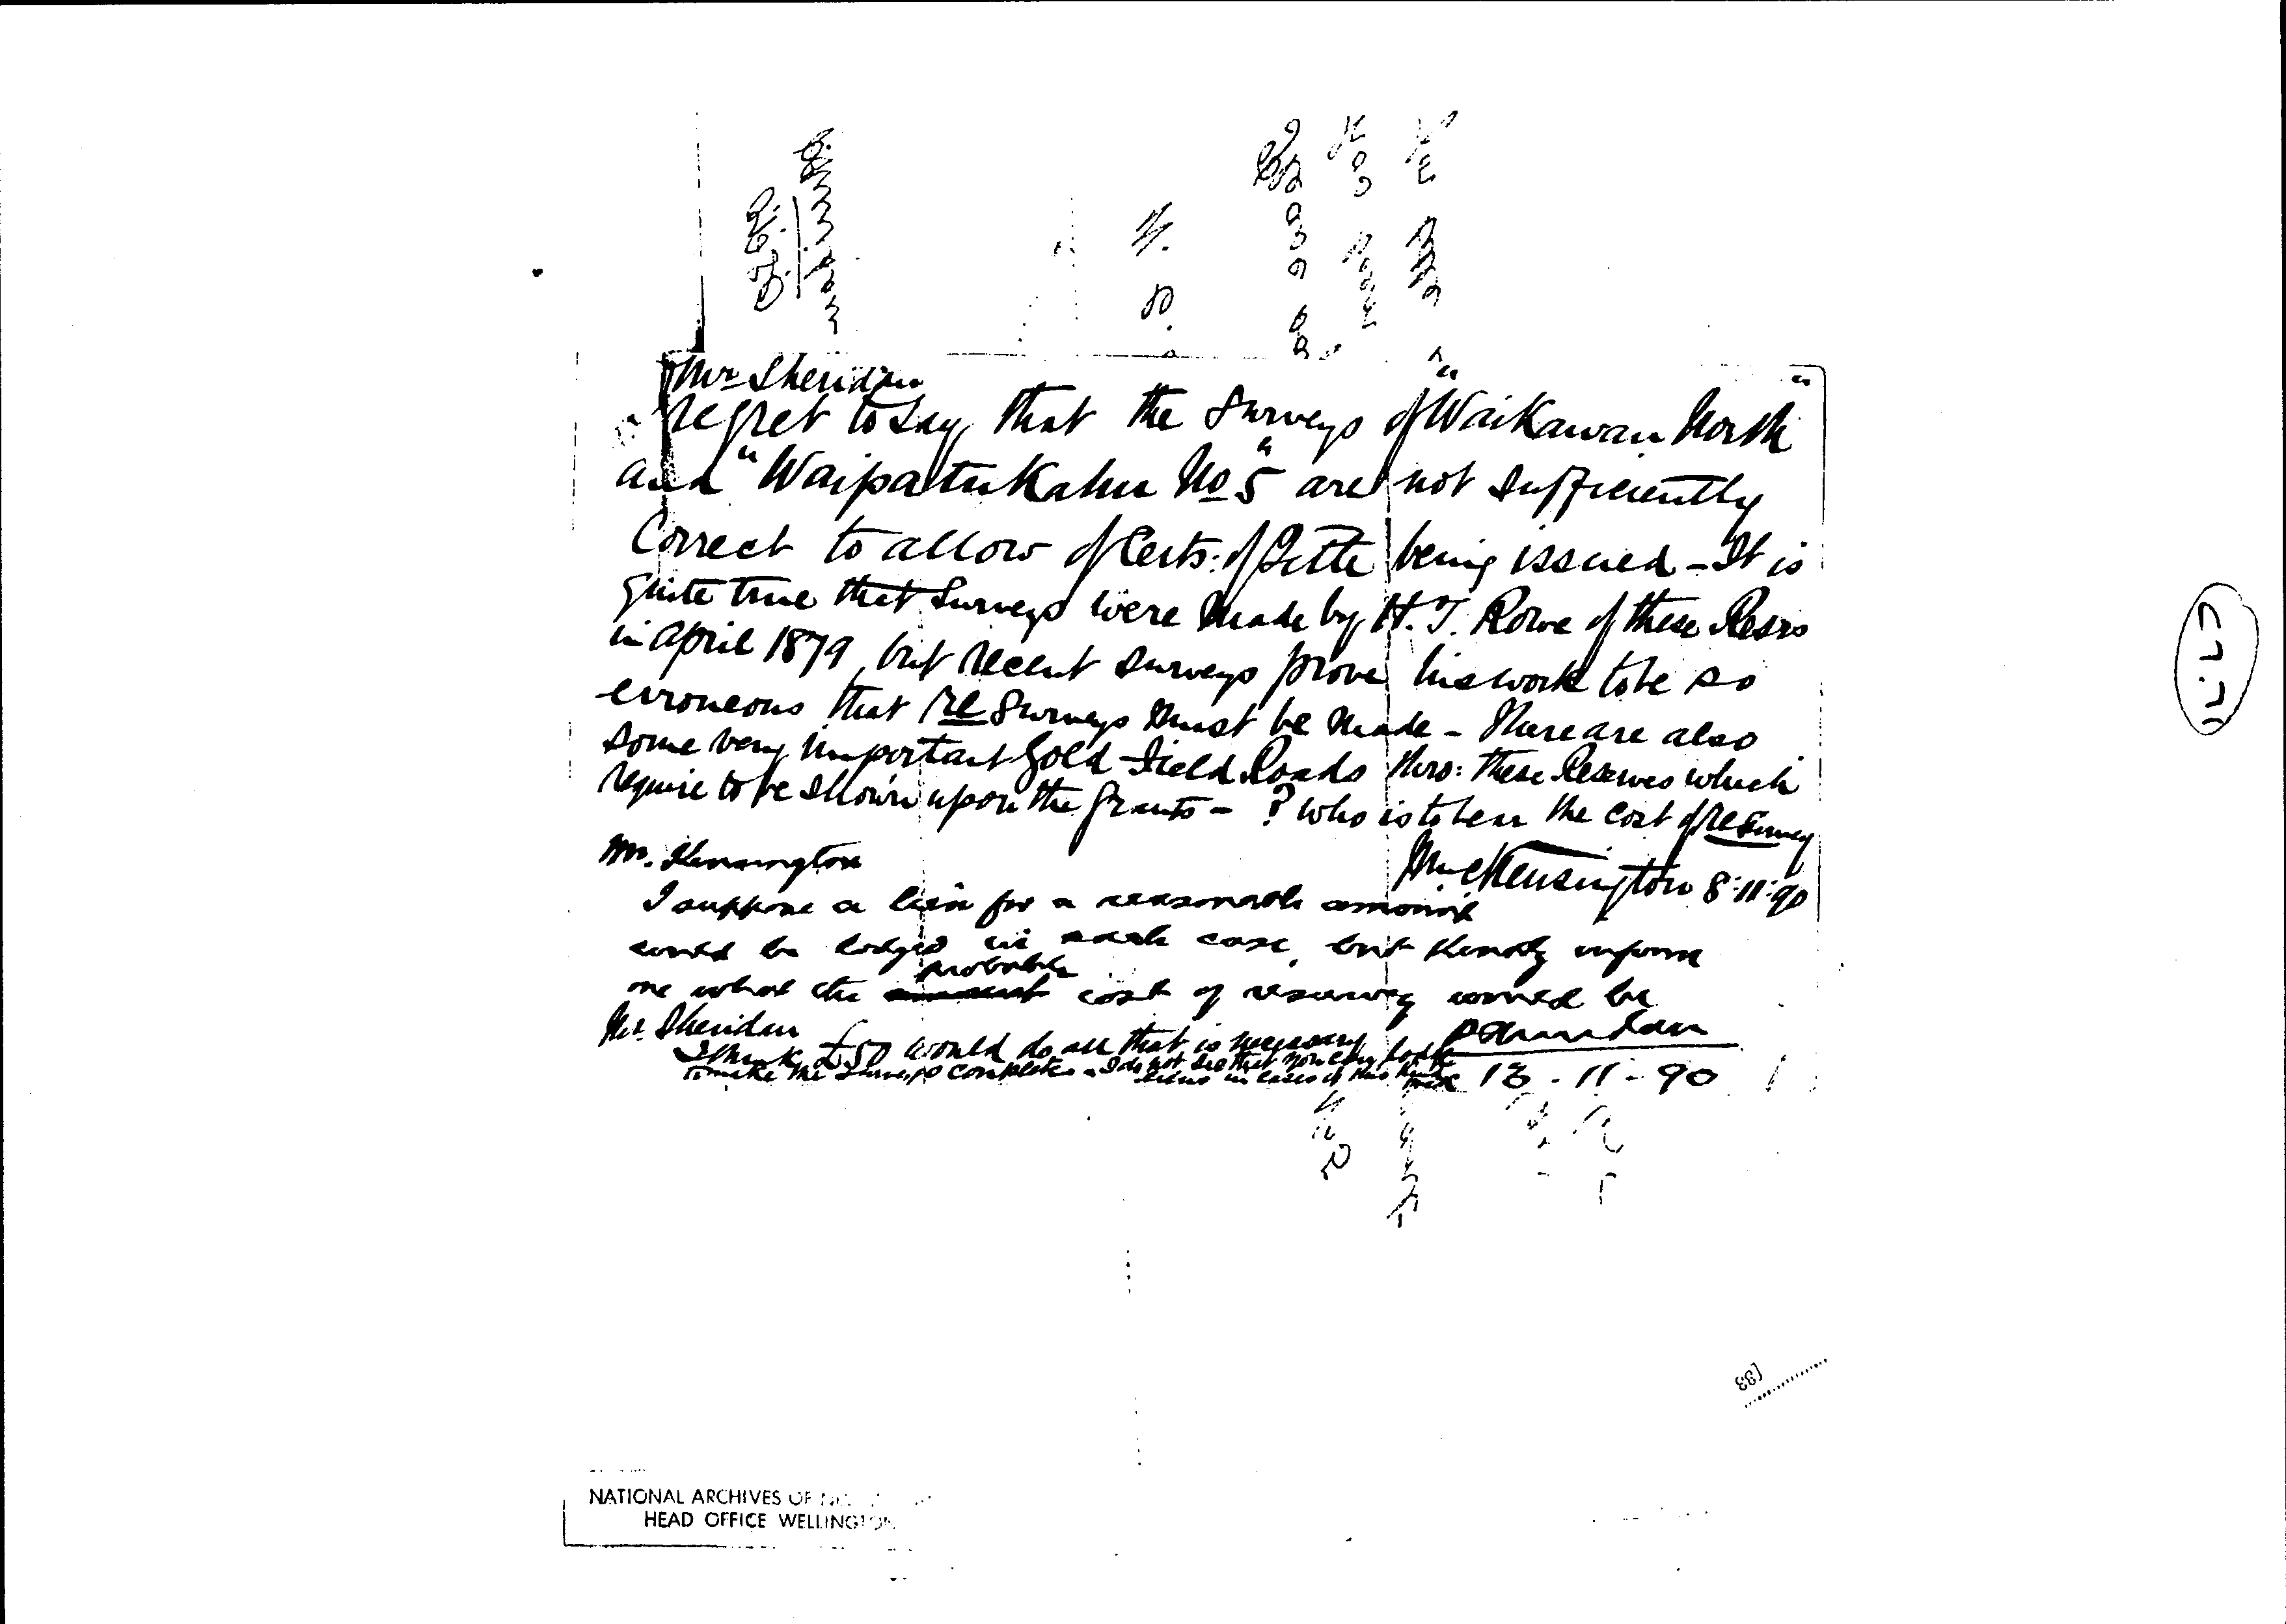 Mr Sheridan
regret to say that the Surveys of "Waikawau North"
and "Waipatukahu No 5" are not sufficiently
Correct to allow of Certs: of Title being issued – It is
quite true that Surveys were made by H. T. Rowe of these Resrs
in april 1879, but recent surveys prove his work to be so
erroneous that re Surveys must be made – There are also
some very important Gold Field Roads thro: these Reserves which
require to be shown upon the Grants – ? Who is to bear the cost of reSurvey
Kensington 8:11:90
Mr. Kensington
I suppose a lien for a reasonable amount
could be lodged in each case, but kindly inform
me what the probable cost of resurvey would be
P Sheridan
13-11-90
Mr. Sheridan
I think £50 would do all that is necessary
to make the Surveys complete – I do not see that you can lodge
liens in cases of this kind
NATIONAL ARCHIVES OF
HEAD OFFICE WELLINGTON
[33